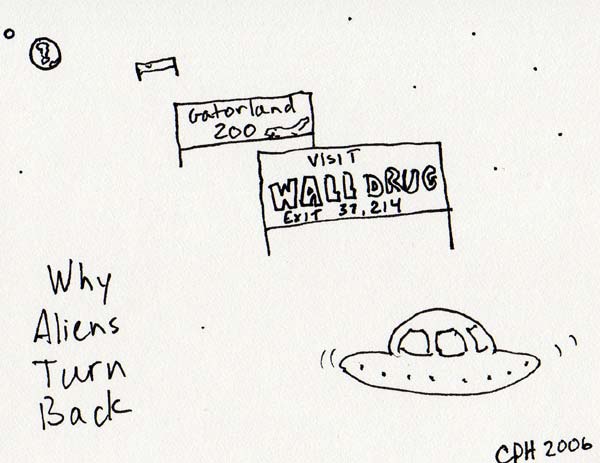 Gatorland
200
VISIT
WALL DRUG
EXIT 37,214
Why
Aliens
Turn
Back
CPH 2006